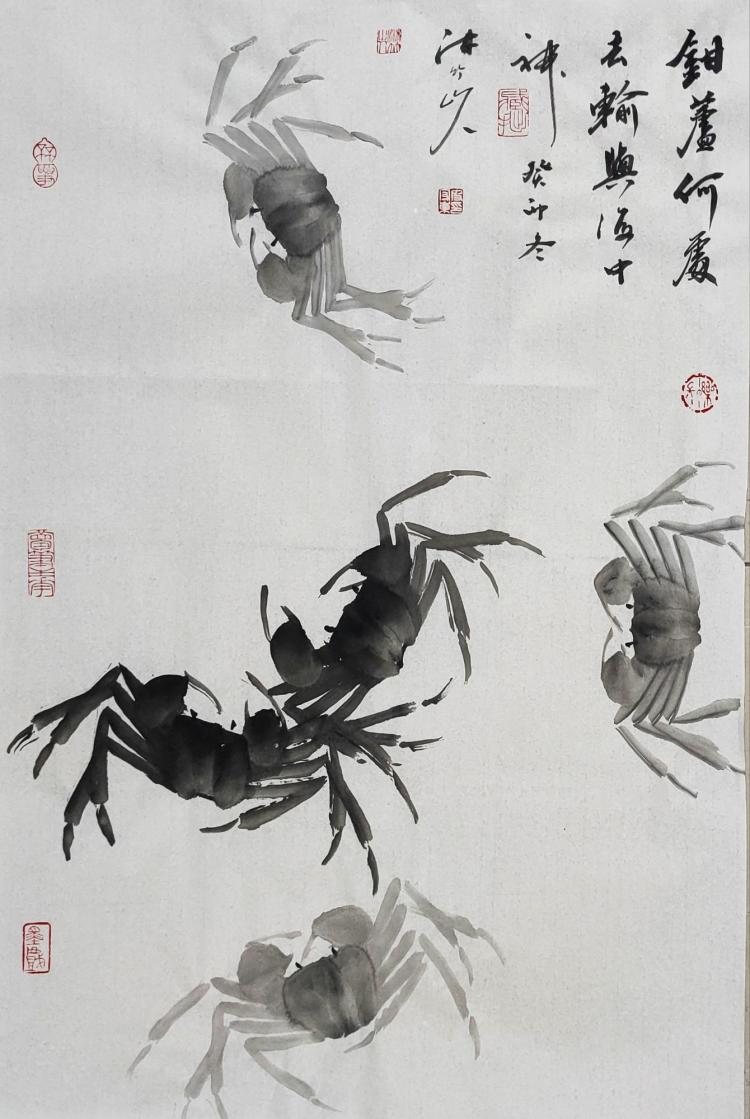 鉗蘆何處
去輸與海中
神 癸卯冬
沐竹山人
墨戲